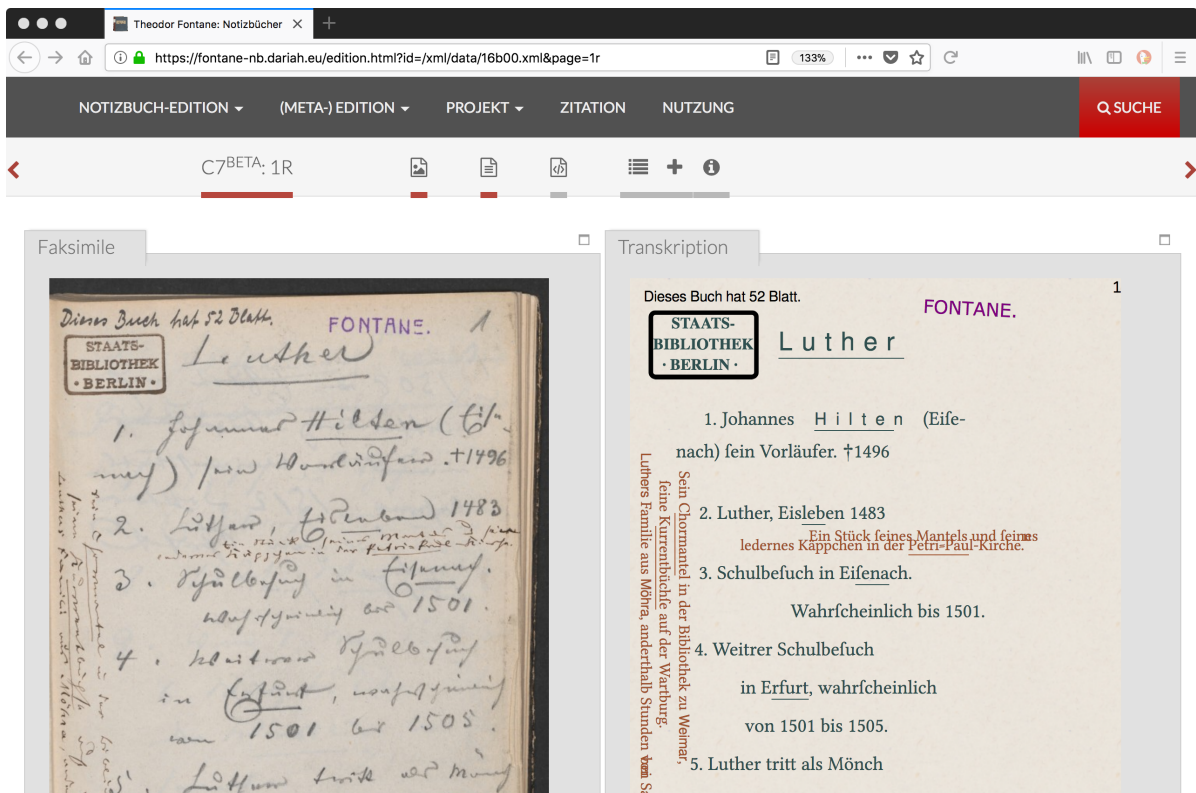 Theodor Fontane: Notizbücher
https://fontane-nb.dariah.eu/edition.html?id=/xml/data/16b00.xml&page=1r
133%
NOTIZBUCH-EDITION
(META-) EDITION
PROJEKT
ZITATION
NUTZUNG
SUCHE
C7BETA: 1R
Faksimile
Dieses Buch hat 52 Blatt.
FONTANE.
1
STAATS-
BIBLIOTHEK
· BERLIN ·
Luther
1. Johannes Hilten (Eiſe-
nach) ſein Vorläufer. †1496
2. Luther, Eisleben 1483
Ein Stück ſeines Mantels und ſein
ledernes Käppchen in der Petri-Paul-Kirche.
3. Schulbeſuch in Eiſenach.
Wahrſcheinlich bis 1501.
4. Weitrer Schulbeſuch
in Erfurt, wahrſcheinlich
von 1501 bis 1505.
5. Luther tritt als Mönch
Sein Chormantel in der
ſeine Kurrentbüchſe auf
Luthers Familie aus Möhra,
Transkription
1
Dieses Buch hat 52 Blatt.
FONTANE.
STAATS-
BIBLIOTHEK
· BERLIN ·
Luther
1. Johannes Hilten (Eiſe-
nach) ſein Vorläufer. †1496
2. Luther, Eisleben 1483
Ein Stück ſeines Mantels und ſeines
ledernes Käppchen in der Petri=Paul-Kirche.
3. Schulbeſuch in Eiſenach.
Wahrſcheinlich bis 1501.
4. Weitrer Schulbeſuch
in Erfurt, wahrſcheinlich
von 1501 bis 1505.
5. Luther tritt als Mönch
Sein Chormantel in der Bibliothek zu Weimar,
ſeine Kurrentbüchſe auf der Wartburg.
Luthers Familie aus Möhra, anderthalb Stunden